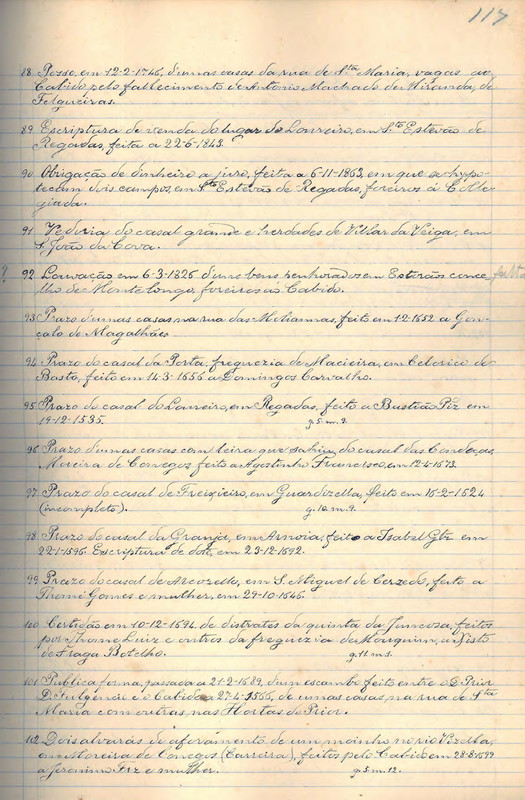 117
88 Posse, em 12-2-1746, d'umas casas da rua de Sta Maria, vagas ao
Cabido pelo fallecimento de Antonio Machado de Miranda, de
Felgueiras.
89 Escriptura de venda do lugar do Loureiro, em Sto Estevão de
Regadas, feita a 22-6-1843.
90 Obrigação de dinheiro a juro, feita a 6-11-1863, em que se hypo-
tecam dois campos, em Sto Estevão de Regadas, foreiros á Colle-
giada.
91 Vedoria do casal grande e herdades de Villar da Veiga, em
S. João da Cova.
? 92 Louvação em 6-3-1826 d'uns bens penhorados em Estorãos conce- falta
lho de Monte Longo, foreiros ao Cabido.
93 Prazo d'umas casas na rua das Mohannas, feito em 1-2-1652 a Gon-
çalo de Magalhães.
94 Prazo do casal da Porta, freguezia de Macieira, em Celorico de
Basto, feito em 14-3-1656 a Domingos Carvalho.
95 Prazo do casal do Loureiro, em Regadas, feito a Bastião Piz em
19-12-1535. g. 5. m. 9.
96 Prazo d'umas casas com leira que sahiu do casal das Condeças,
Moreira de Conegos feito a Agostinho Francisco, em 12-4-1673.
97 Prazo do casal de Freigieiro, em Guardizella, feito em 16-2-1524
(incompleto). g. 10. m. 9.
98 Prazo do casal da Granja, em Arnoia, feito a Isabel Glz em
22-1-1596. Escriptura de dote, em 23-12-1692.
99 Prazo do casal de Arcozello, em S. Miguel de Cerzedo, feito a
Thomé Gomes e mulher, em 29-10-1646.
100 Certidão em 10-12-1694 de distrates da quinta da Juncosa, feitos
por Thomé Luiz e outros da freguezia de Mouquim, a Xisto
de Fraga Botelho. g. 11. m. 1.
101 Publica forma, passada a 21-2-1689, d'um escambo feito entre o D. Prior
D. Fulgencio e o Cabido a 27-4-1566, de umas casas, na rua de Sta
Maria com outras, nas Hortas do Prior.
102 Dois alvarás de aforamento de um moinho no rio Vizella,
em Moreira de Conegos (Carreira), feitos pelo Cabido em 28-8-1599
a Jeronimo Frz e mulher. g. 5. m. 12.